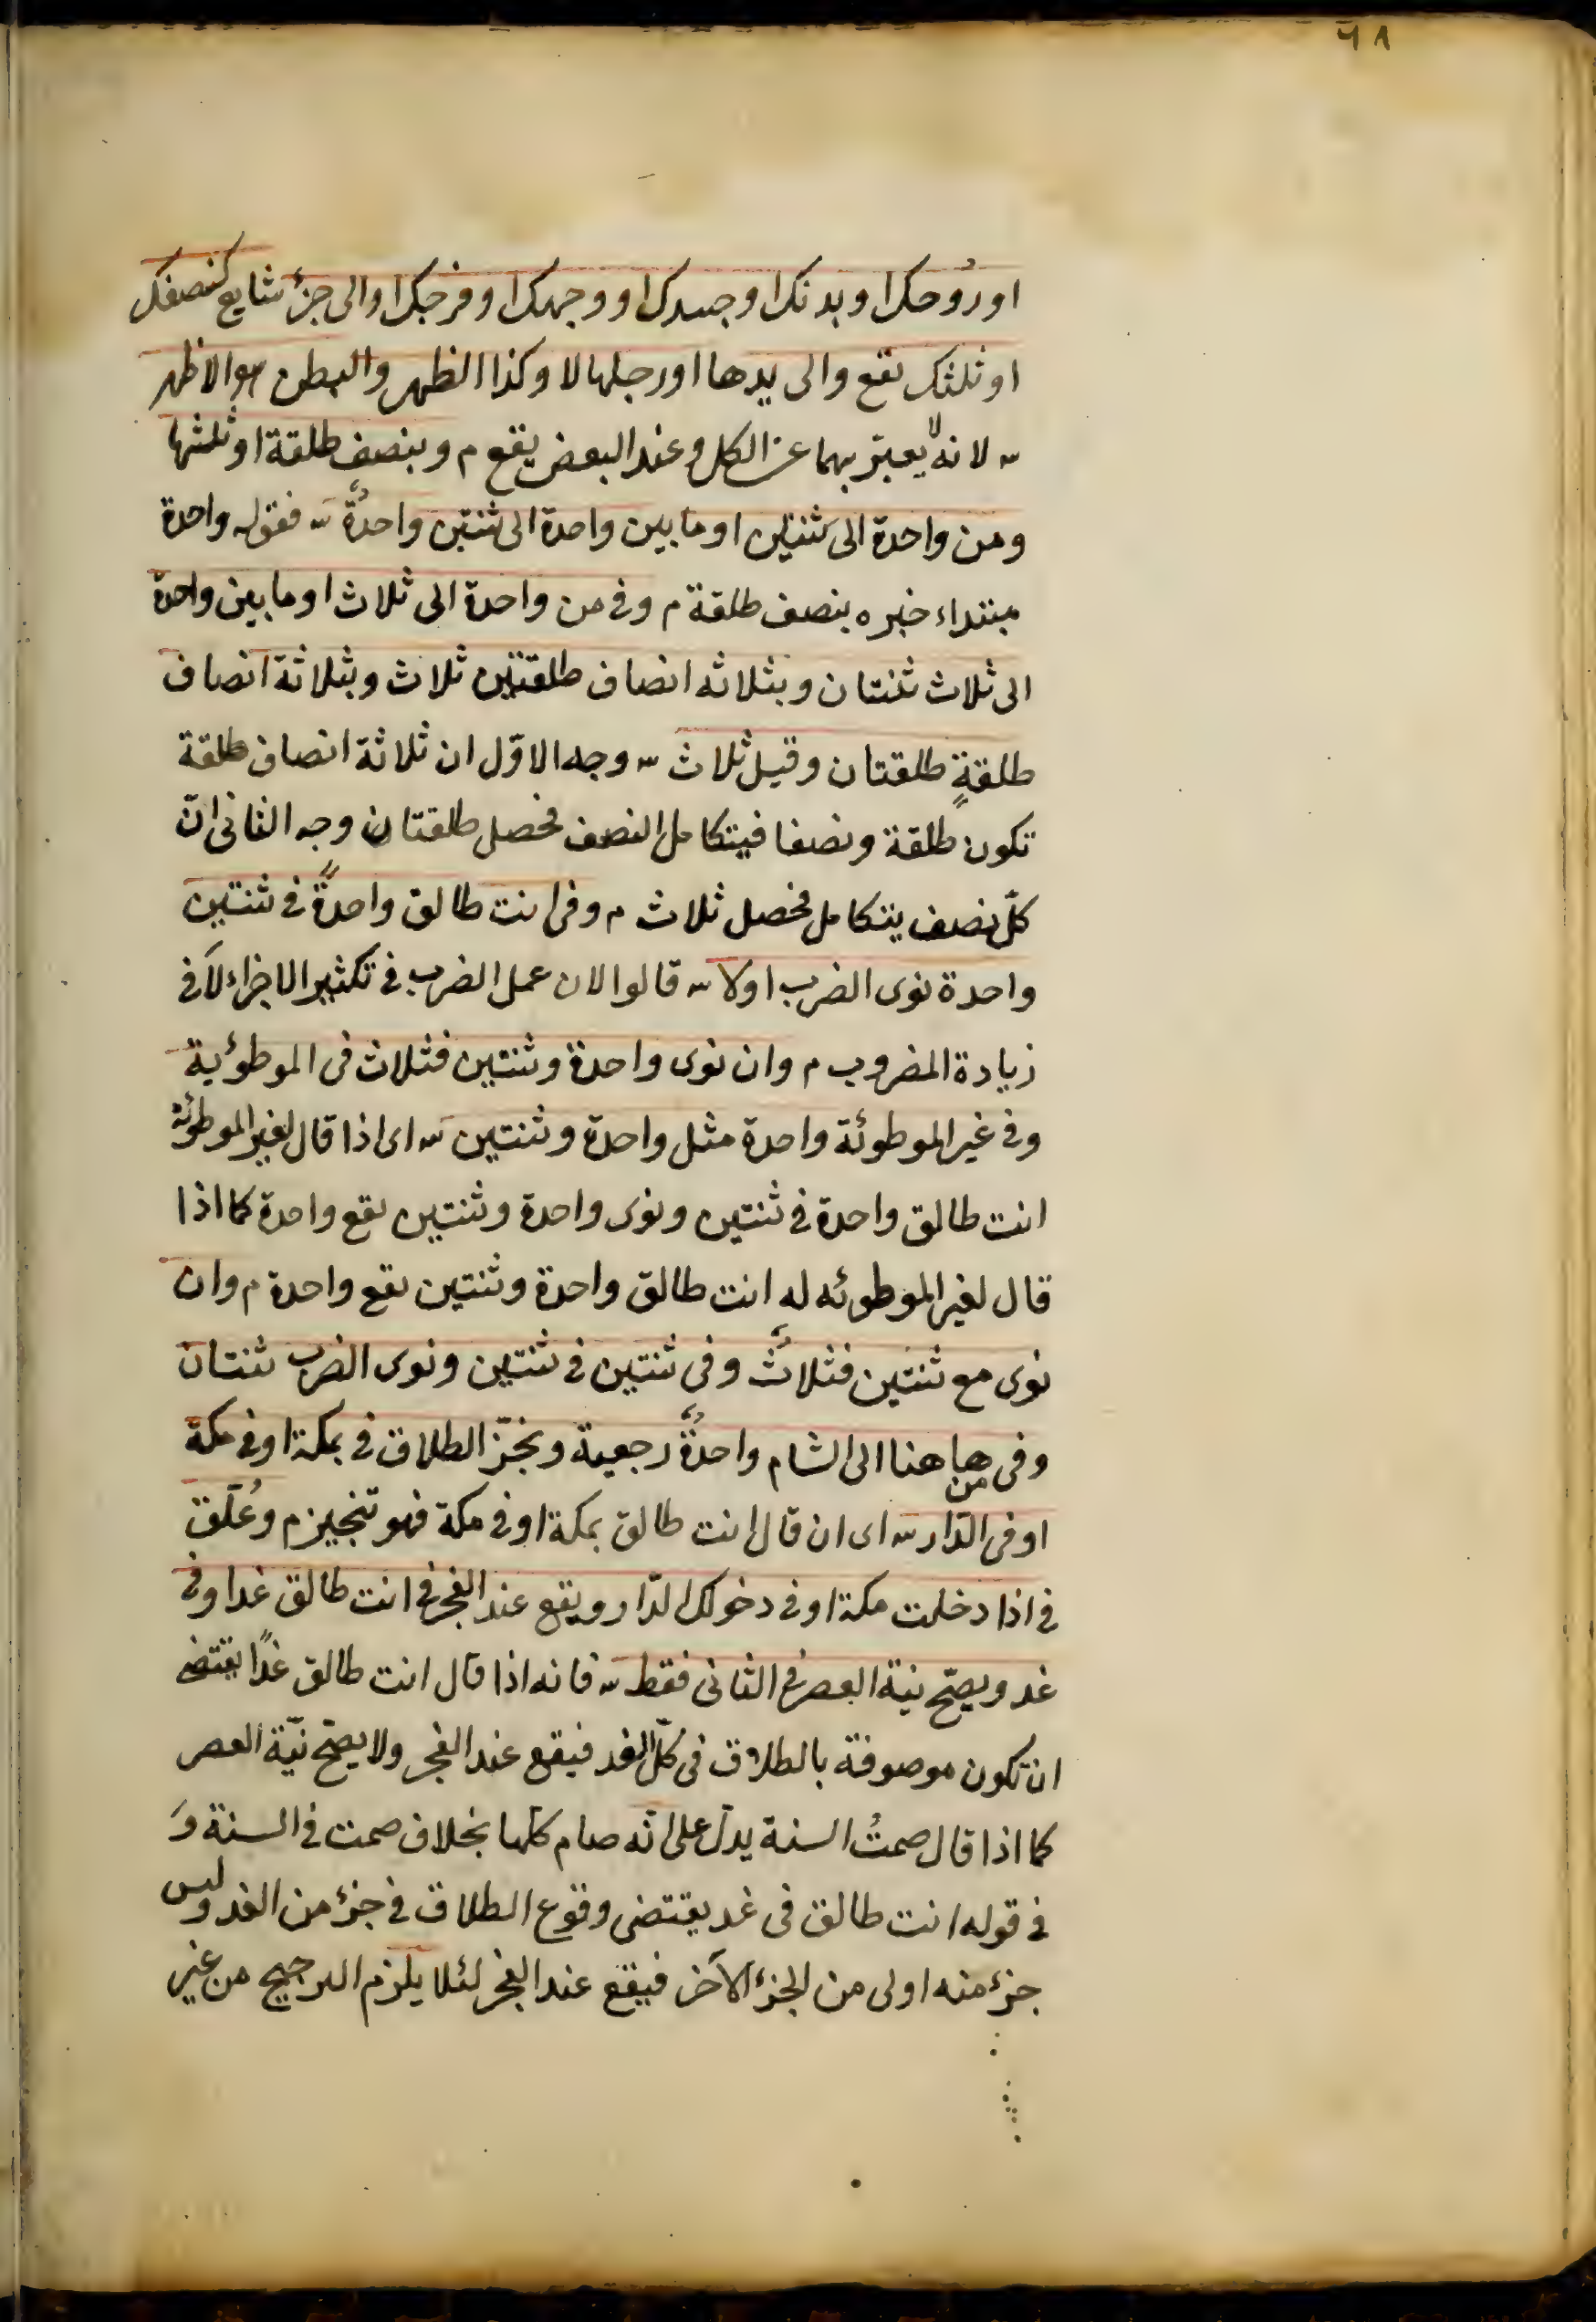 ٦٨
او روحك او بدنك او جسدك او وجهك او فرجك او الى جزء شايع كنصفك
او ثلثك يقع والى يدها او رجلها لا وكذا الظهر والبطن هو الاظهر
س لانه لا يعبّر بهما عن الكل وعند البعض يقع م وبنصف طلقة او ثلثها
ومن واحدة الى ثنتين او ما بين واحدة الى ثنتين واحدةٌ س فقوله واحدة
مبتداء خبره بنصف طلقة م وفى من واحدة الى ثلاث او ما بين واحدة
الى ثلاث ثنتان وبثلاثه انصاف طلقتين ثلاث وبثلاثة انصاف
طلقةٍ طلقتان وقيل ثلاث س وجه الاوّل ان ثلاثة انصاف طلقة
تكون طلقة ونصفا فيتكامل النصف فحصل طلقتان وجه الثانى انّ
كلّ نصف يتكامل فحصل ثلاث م وفى انت طالق واحدةً فى ثنتين
واحدة نوى الضرب اولا س قالوا لان عمل الضرب فى تكثير الاجزاء لا فى
زيادة المضروب م وان نوى واحدة وثنتين فثلاث فى الموطوئية
وفى غير الموطوئة واحدة مثل واحدة وثنتين س اى اذا قال لغير الموطوئة
انت طالق واحدة فى ثنتين ونوى واحدة وثنتين يقع واحدة كما اذا
قال لغير الموطوئه له انت طالق واحدة وثنتين يقع واحدة م وان
نوى مع ثنتين فثلاثٌ وفى ثنتين فى ثنتين ونوى الضرب ثنتان
وفى من ها هنا الى الشام واحدةٌ رجعية وينجّز الطلاق فى بمكة او فى مكة
او فى الدّار س اى ان قال انت طالق بمكة او فى مكة فهو تنجيز م وعُلّق
فى اذا دخلت مكة او فى دخولك الدّار ويقع عند الفجر فى انت طالق غدا وفى
غد ويصحّ نية العصر فى الثانى فقط س فانه اذا قال انت طالق غدًا يقتضى
ان تكون موصوفة بالطلاق فى كلّ الغد فيقع عند الفجر ولا يصحّ نيّة العصر
كما اذا قال صمتُ السنة يدلّ على انّه صام كلّها بخلاف صمت فى السنة وَ
فى قوله انت طالق فى غد يقتضى وقوع الطلاق فى جزء من الغد وليس
جزء منه اولى من الجزء الآخر فيقع عند الفجر لئلا يلزم الترجيح من غير